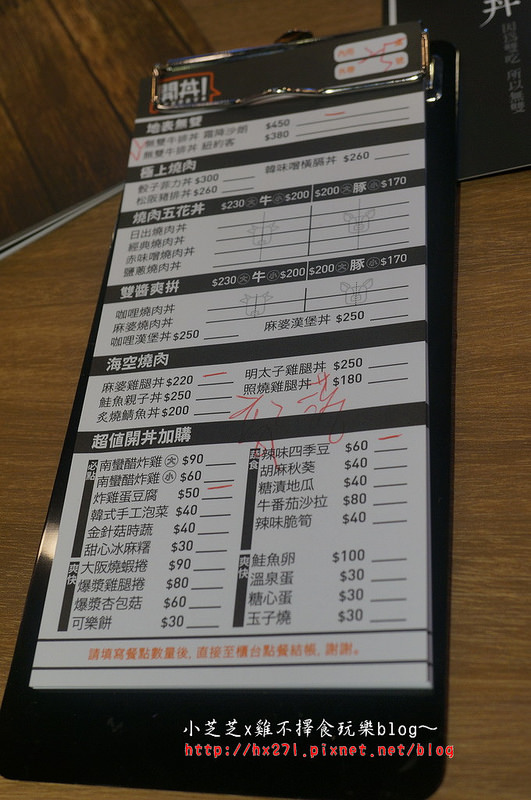 丼
因為豐吃 所以無雙
開丼!
內用
外帶
地表無雙
無雙牛排丼 霜降沙朗 $450
無雙牛排丼 紐約客 $380
極上燒肉
骰子菲力丼 $300 韓味噌橫膈丼 $260
松阪豬排丼 $260
燒肉五花丼 $230 大 牛 小 $200 $200 大 豚 小 $170
日出燒肉丼
經典燒肉丼
赤味噌燒肉丼
鹽蔥燒肉丼
雙醬爽拚 $230 大 牛 小 $200 $200 大 豚 小 $170
咖哩燒肉丼
麻婆燒肉丼
咖哩漢堡丼 $250 麻婆漢堡丼 $250
海空燒肉
麻婆雞腿丼 $220 明太子雞腿丼 $250
鮭魚親子丼 $250 照燒雞腿丼 $180
炙燒鯖魚丼 $200
超值開丼加購
必點
南蠻醋炸雞 大 $90
南蠻醋炸雞 小 $60
炸雞蛋豆腐 $50
韓式手工泡菜 $40
金針菇時蔬 $40
甜心冰麻糬 $30
爽快
大阪燒蝦捲 $90
爆漿雞腿捲 $80
爆漿杏包菇 $60
可樂餅 $30
辣味四季豆 $60
胡麻秋葵 $40
糖漬地瓜 $40
牛番茄沙拉 $80
辣味脆筍 $40
爽快
鮭魚卵 $100
溫泉蛋 $30
糖心蛋 $30
玉子燒 $30
請填寫餐點數量後, 直接至櫃台點餐結帳, 謝謝。
小芝芝x雞不擇食玩樂blog～
http://hx271.pixnet.net/blog